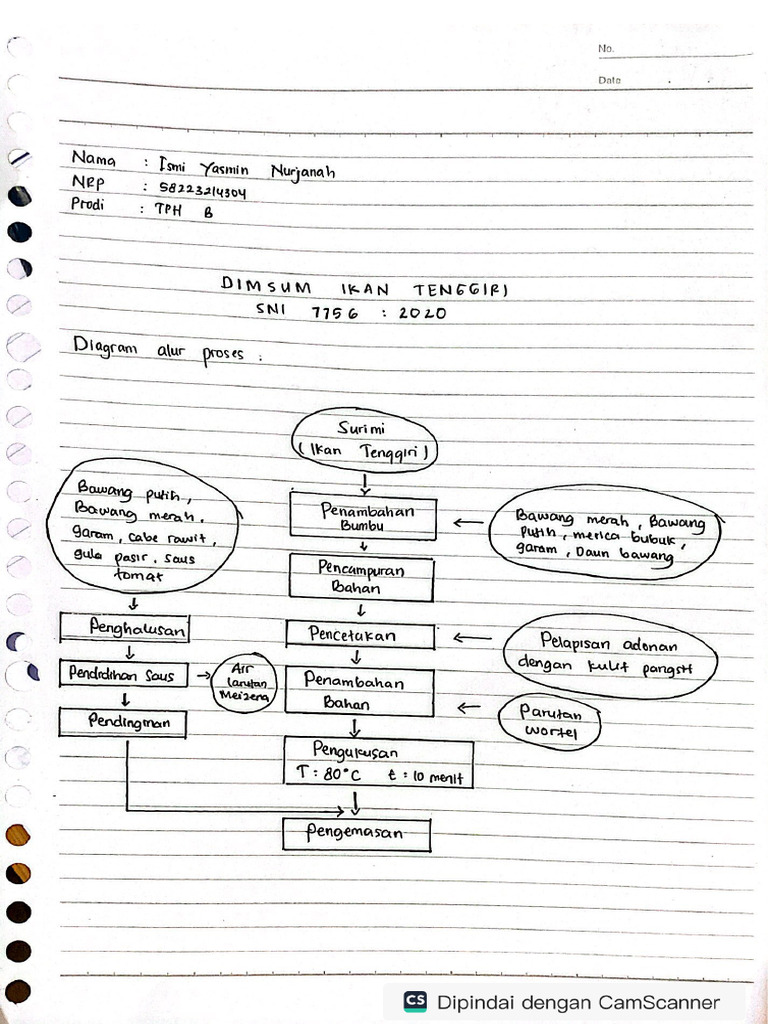 No.
Date
Nama : Ismi Yasmin Nurjanah
NRP : 58223214304
Prodi : TPH B
DIMSUM IKAN TENGGIRI
SNI 7756 : 2020
Diagram alur proses :
Surimi
(Ikan Tenggiri)
Penambahan
Bumbu
Bawang merah, Bawang
putih, merica bubuk,
garam, Daun bawang
Pencampuran
Bahan
Pencetakan
Pelapisan adonan
dengan kulit pangsit
Penambahan
Bahan
Parutan
wortel
Pengukusan
T : 80°C t : 10 menit
Bawang putih,
Bawang merah,
garam, cabe rawit,
gula pasir, saus
tomat
Penghalusan
Pendidihan Saus
Air
larutan
Meizena
Pendinginan
Pengemasan
CS Dipindai dengan CamScanner